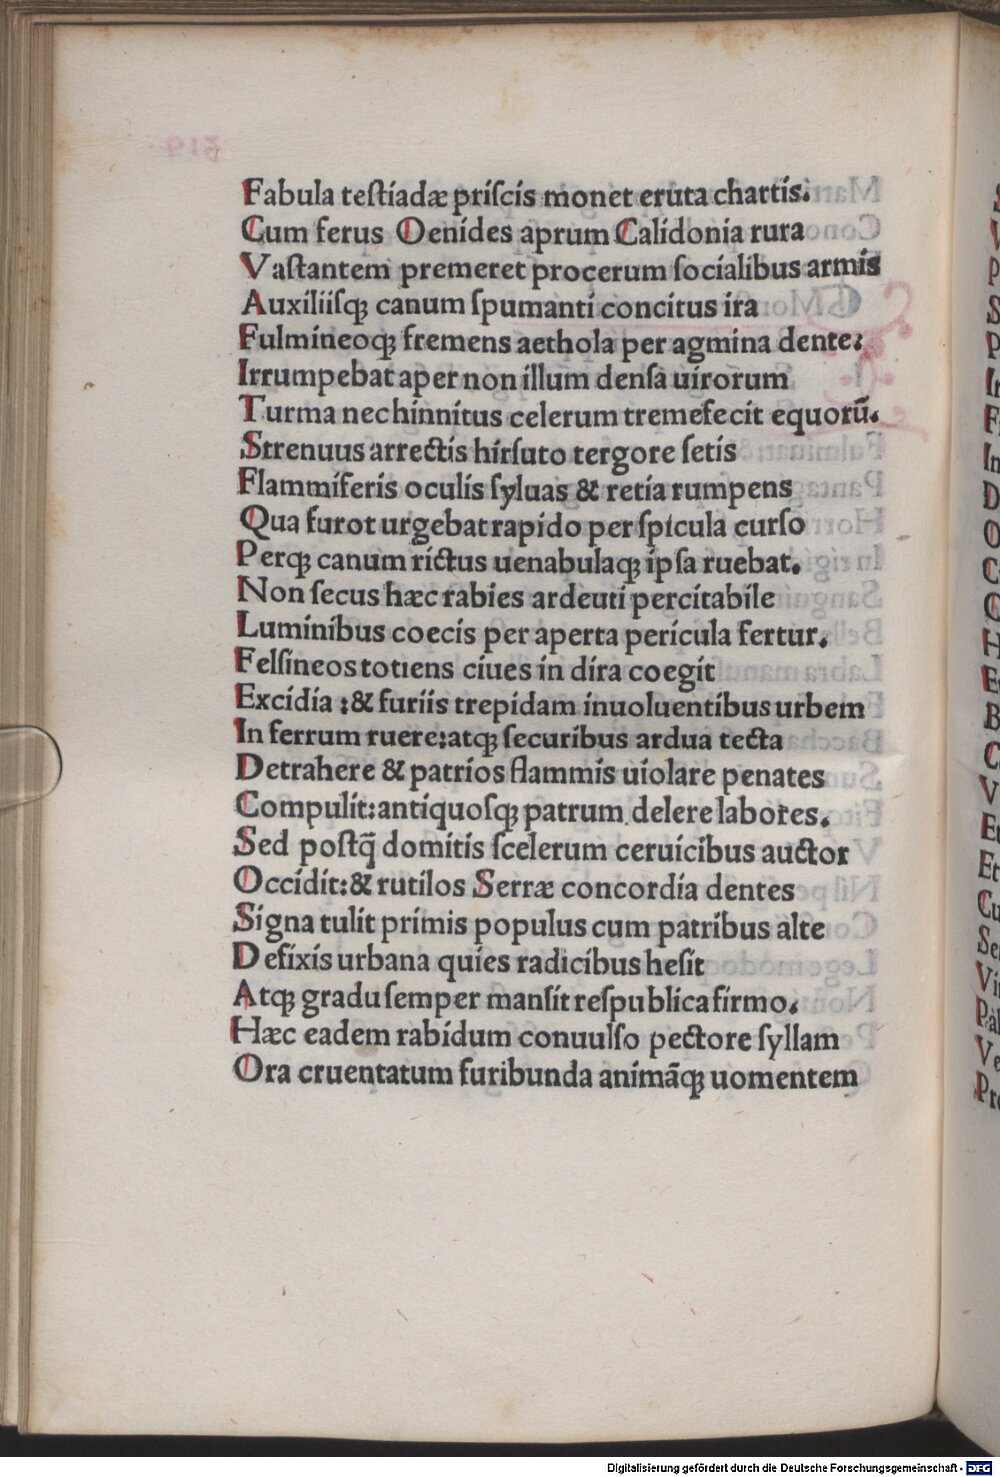 Fabula teſtiadæ priſcis monet eruta chartis.
Cum ferus Oenides aprum Calidonia rura
Vaſtantem premeret procerum ſocialibus armis
Auxiliiſqꝫ canum ſpumanti concitus ira
Fulmineoqꝫ fremens aethola per agmina dente:
Irrumpebat aper non illum denſa uirorum
Turma nec hinnitus celerum tremefecit equorū.
Strenuus arrectis hirſuto tergore ſetis
Flammiferis oculis ſyluas & retia rumpens
Qua furor urgebat rapido per ſpicula curſo
Perqꝫ canum rictus uenabulaqꝫ ipſa ruebat.
Non ſecus hæc rabies ardeuti percitabile
Luminibus coecis per aperta pericula fertur.
Felſineos totiens ciues in dira coegit
Excidia :& furiis trepidam inuoluentibus urbem
In ferrum ruere:atqꝫ ſecuribus ardua tecta
Detrahere & patrios flammis uiolare penates
Compulit:antiquoſqꝫ patrum delere labores.
Sed poſtq̄ domitis ſcelerum ceruicibus auctor
Occidit:& rutilos Serræ concordia dentes
Signa tulit primis populus cum patribus alte
Defixis urbana quies radicibus heſit
Atqꝫ gradu ſemper manſit reſpublica firmo.
Hæc eadem rabidum conuulſo pectore ſyllam
Ora cruentatum furibunda animāqꝫ uomentem
Digitalisierung gefördert durch die Deutsche Forschungsgemeinschaft - DFG